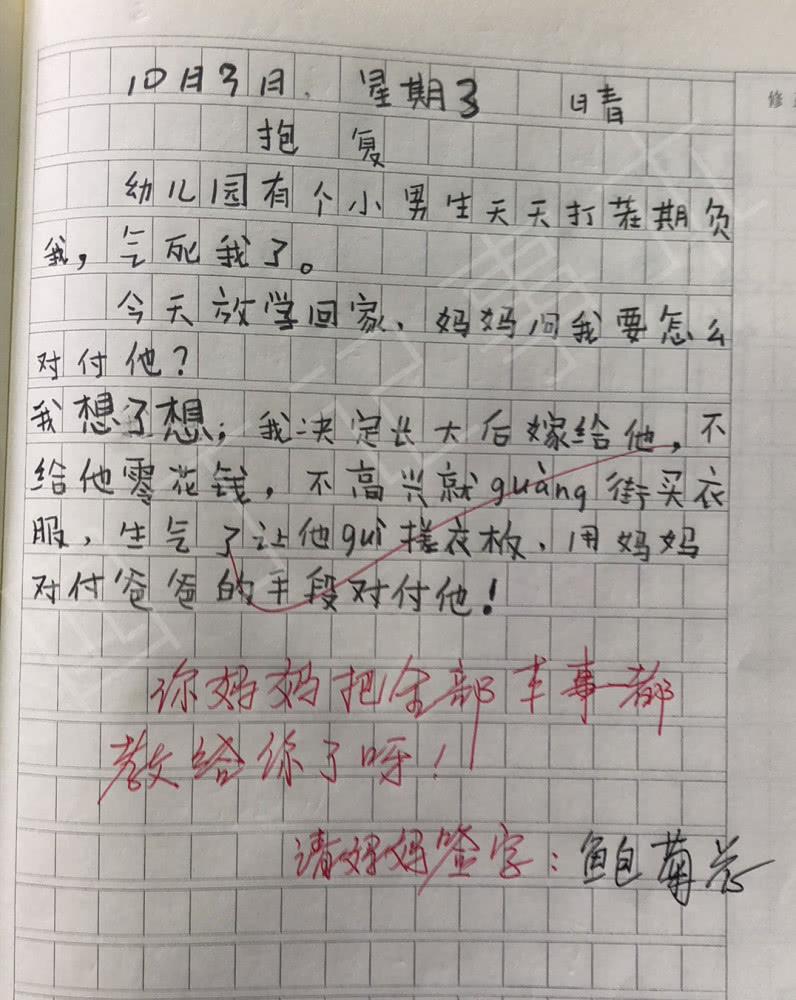 10月3日. 星期3 晴
抱复
幼儿园有个小男生天天打茬期负
我，气死我了。
今天放学回家、妈妈问我要怎么
对付他？
我想了想；我决定长大后嫁给他，不
给他零花钱，不高兴就guàng街买衣
服，生气了让他guì搓衣板、用妈妈
对付爸爸的手段对付他！
你妈妈把全部本事都
教给你了呀！
请妈妈签字：鲍菊
修